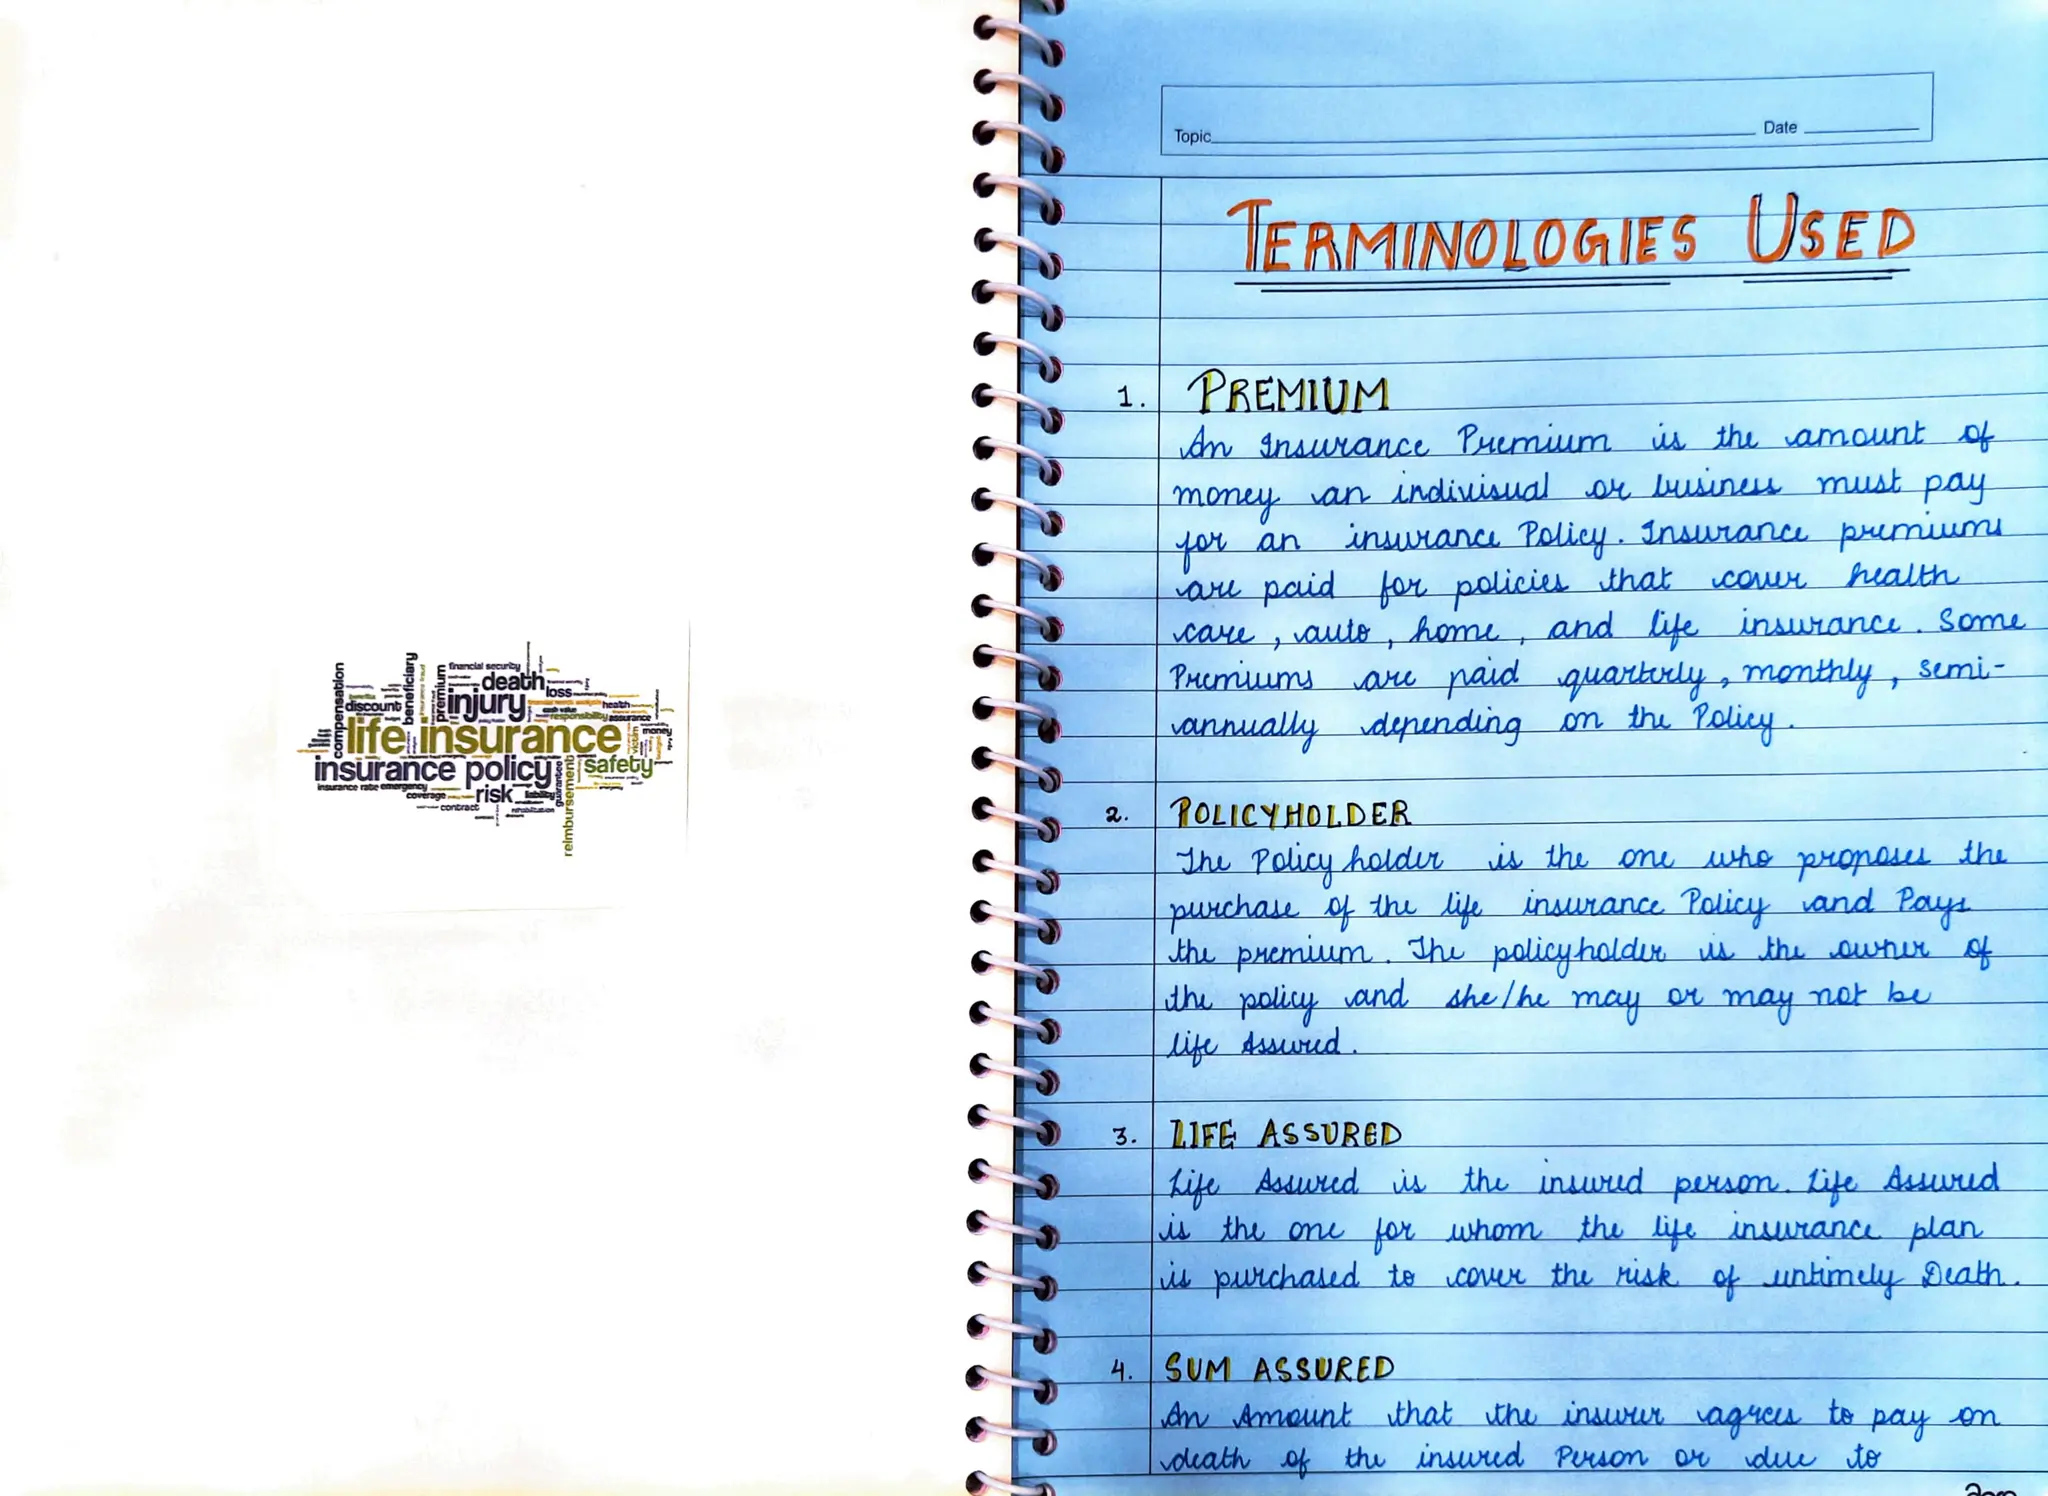 financial security
death
loss
compensation
beneficiary
premium
discount
injury
health
cash value
responsibility
assurance
life insurance
victim
money
insurance policy
safety
insurance rate
emergency
coverage
risk
liability
guarantee
contract
rehabilitation
reimbursement
Topic Date
TERMINOLOGIES USED
1. PREMIUM
An Insurance Premium is the amount of
money an indivisual or business must pay
for an insurance Policy. Insurance premiums
are paid for policies that cover health
care, auto, home, and life insurance. Some
Premiums are paid quarterly, monthly, semi-
annually depending on the Policy.
2. POLICYHOLDER
The Policy holder is the one who proposes the
purchase of the life insurance Policy and Pays
the premium. The policyholder is the owner of
the policy and she/he may or may not be
life Assured.
3. LIFE ASSURED
Life Assured is the insured person. Life Assured
is the one for whom the life insurance plan
is purchased to cover the risk of untimely Death.
4. SUM ASSURED
An Amount that the insurer agrees to pay on
death of the insured Person or due to